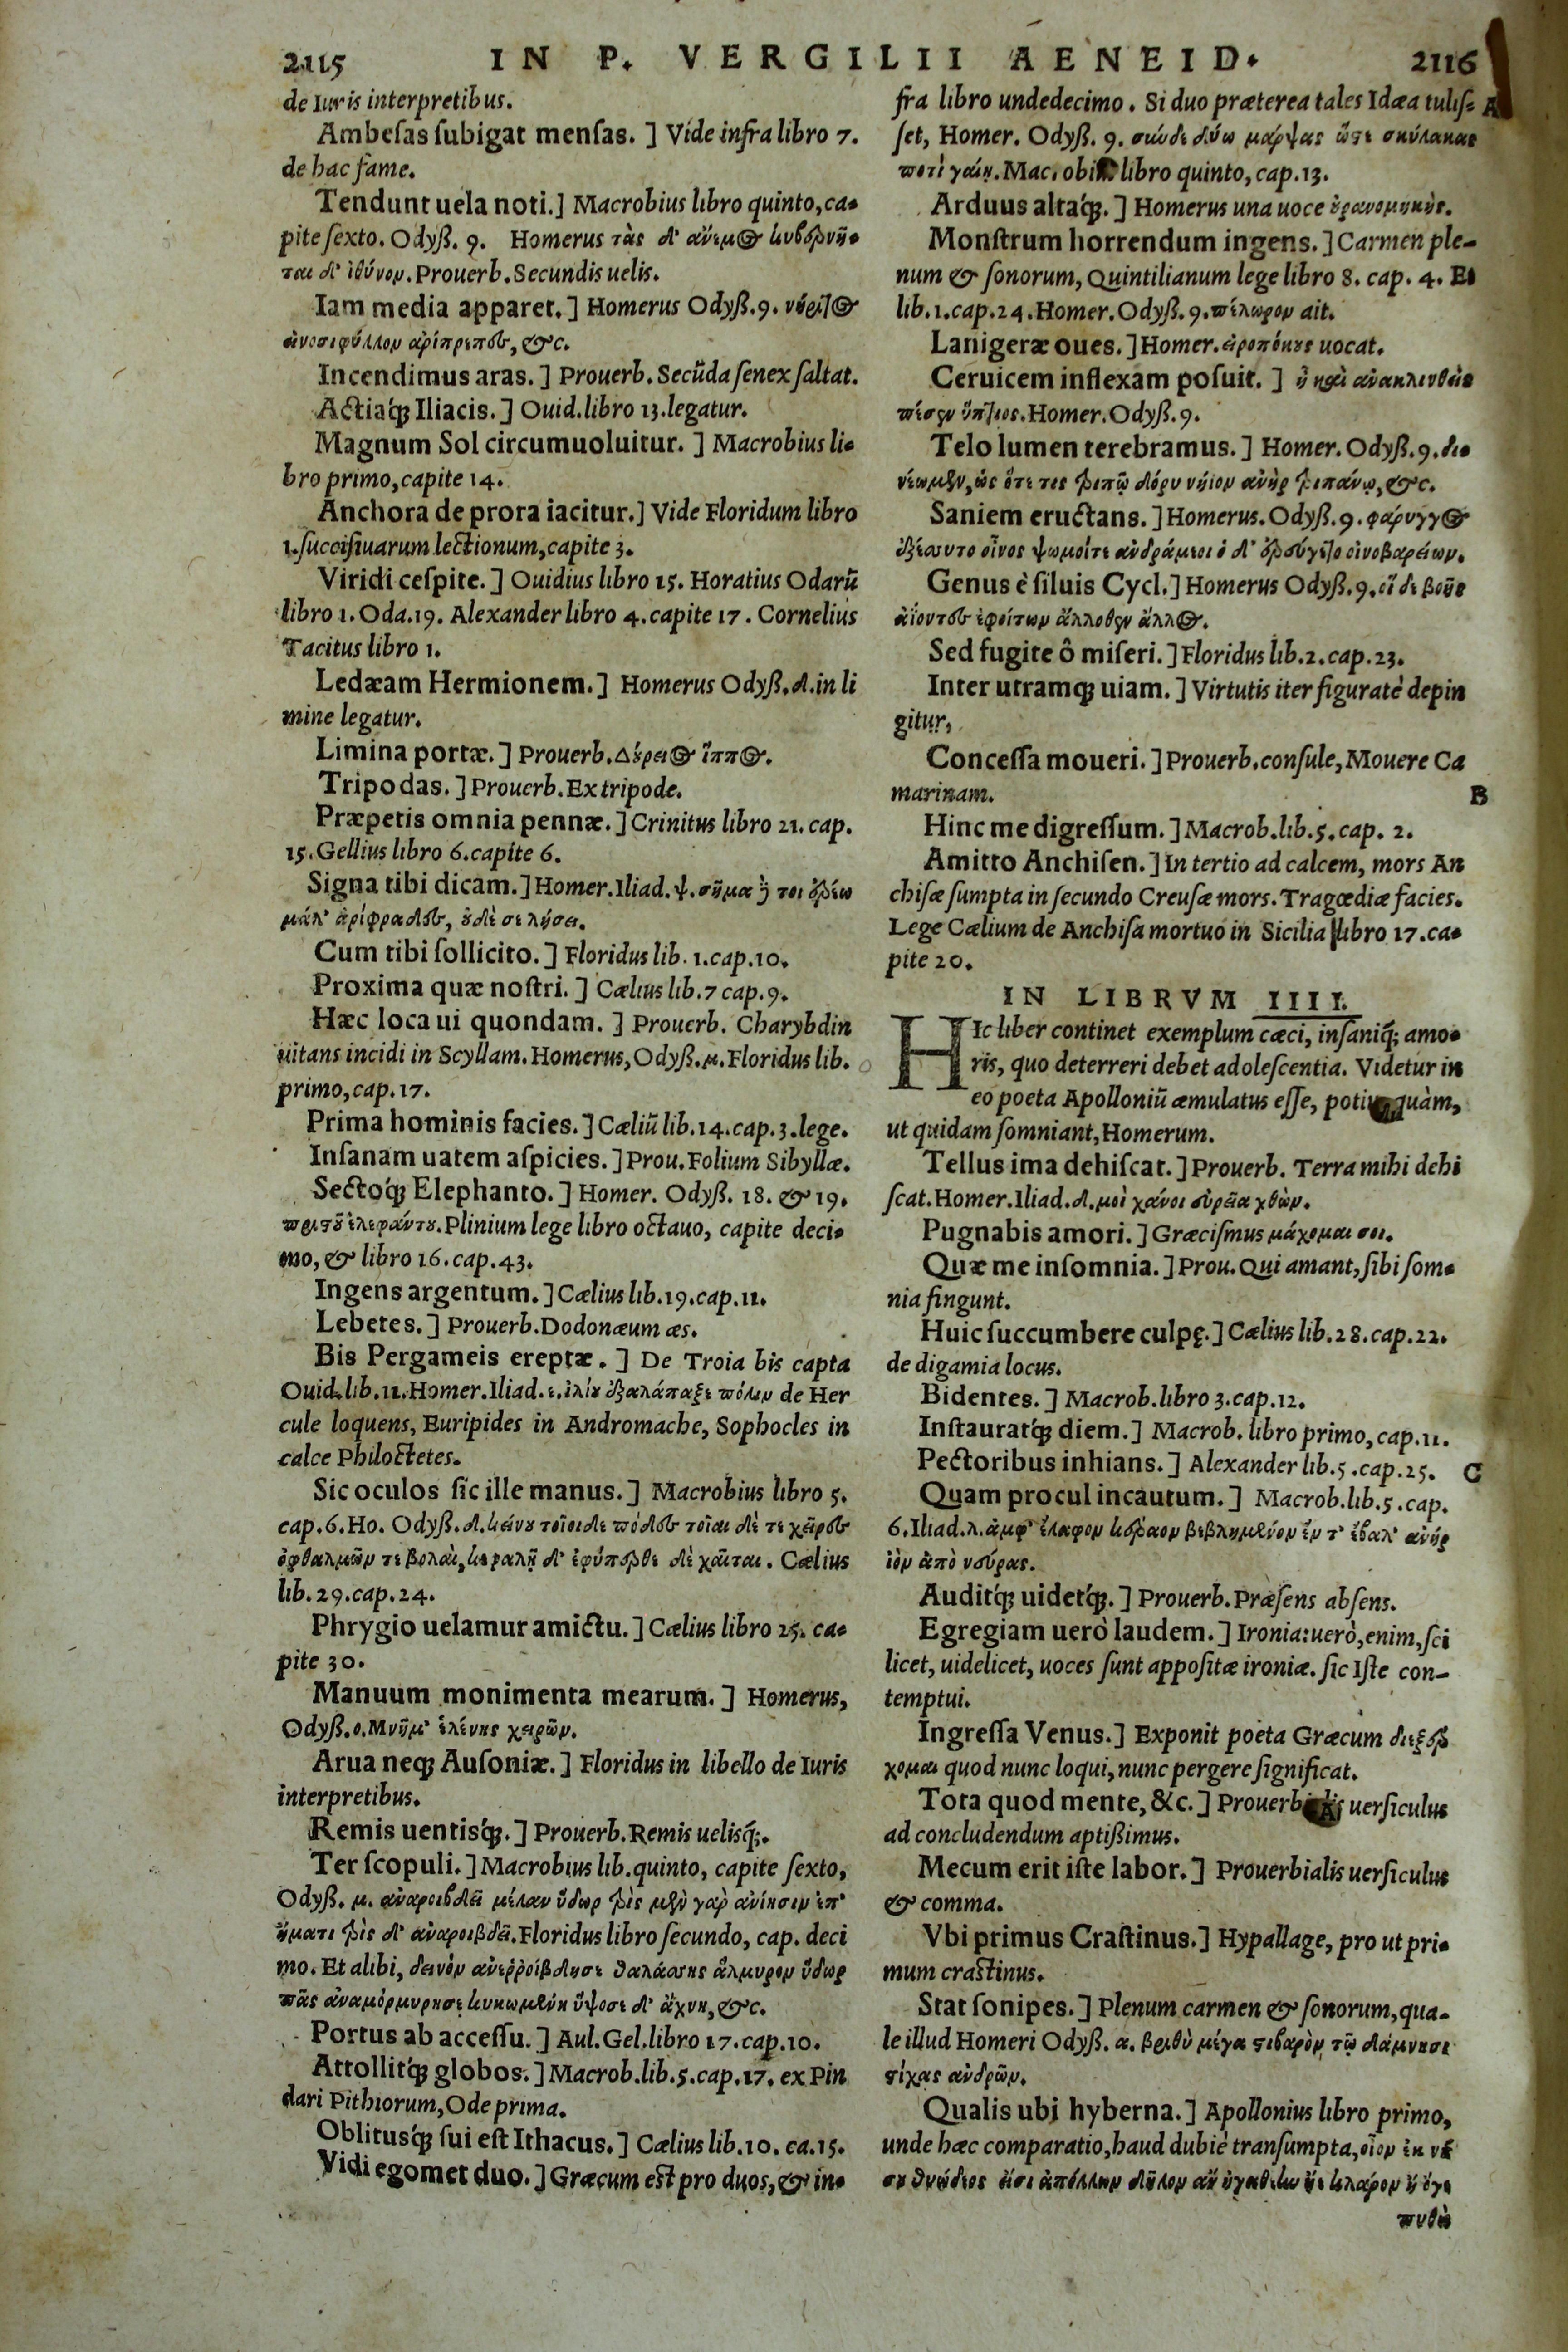 2115 IN P. VERGILII AENEID. 2116
de Iuris interpretibus.
Ambesas subigat mensas.] Vide infra libro 7.
de hac fame.
Tendunt uela noti.] Macrobius libro quinto, ca-
pite sexto. Odyß. 9. Homerus τὰς δ' ἄνεμος κυβερνῆ-
ται δ' ἰθύνον. Prouerb. Secundis uelis.
Iam media apparet.] Homerus Odyß. 9. νήριτος
εἰνοσιφύλλον ἀρίπρεπες, &c.
Incendimus aras.] Prouerb. Secūda senex saltat.
Actiaq́; Iliacis.] Ouid. libro 13. legatur.
Magnum Sol circumuoluitur.] Macrobius li-
bro primo, capite 14.
Anchora de prora iacitur.] Vide Floridum libro
1. succisiuarum lectionum, capite 3.
Viridi cespite.] Ouidius libro 15. Horatius Odarū
libro 1. Oda. 19. Alexander libro 4. capite 17. Cornelius
Tacitus libro 1.
Ledæam Hermionem.] Homerus Odyß. δ. in li
mine legatur.
Limina portæ.] Prouerb. Δούρειος ἵππος.
Tripodas.] Prouerb. Ex tripode.
Præpetis omnia pennæ.] Crinitus libro 21. cap.
15. Gellius libro 6. capite 6.
Signa tibi dicam.] Homer. Iliad. ψ. σῆμα δέ τοι ἐρέω
μάλ' ἀρίφραδες, οὐδέ σε λήσει.
Cum tibi sollicito.] Floridus lib. 1. cap. 10.
Proxima quæ nostri.] Cælius lib. 7 cap. 9.
Hæc loca ui quondam.] Prouerb. Charybdin
uitans incidi in Scyllam. Homerus, Odyß. μ. Floridus lib.
primo, cap. 17.
Prima hominis facies.] Cæliū lib. 14. cap. 3. lege.
Insanam uatem aspicies.] Prou. Folium Sibyllæ.
Sectoq́; Elephanto.] Homer. Odyß. 18. & 19.
πριστοῦ ἐλεφάντου. Plinium lege libro octauo, capite deci-
mo, & libro 16. cap. 43.
Ingens argentum.] Cælius lib. 19. cap. 11.
Lebetes.] Prouerb. Dodonæum æs.
Bis Pergameis ereptæ.] De Troia bis capta
Ouid. lib. 11. Homer. Iliad. ε. ἰλίου ἐξαλάπαξε πόλιν de Her
cule loquens, Euripides in Andromache, Sophocles in
calce Philoctetes.
Sic oculos sic ille manus.] Macrobius libro 5.
cap. 6. Ho. Odyß. δ. κείνου τοῖοι δὲ πόδες τοῖαι δέ τε χεῖρες
ὀφθαλμῶν τε βολαὶ, κεφαλῇ δ' ἐφύπερθε δὲ χαῖται. Cælius
lib. 29. cap. 24.
Phrygio uelamur amictu.] Cælius libro 25. ca-
pite 30.
Manuum monimenta mearum.] Homerus,
Odyß. ο. Μνῆμ' ἑλένης χειρῶν.
Arua neq; Ausoniæ.] Floridus in libello de Iuris
interpretibus.
Remis uentisq́;.] Prouerb. Remis uelisq́;.
Ter scopuli.] Macrobius lib. quinto, capite sexto,
Odyß. μ. ἀναροιβδεῖ μέλαν ὕδωρ τρὶς μὲν γαρ ἀνίησιν ἐπ'
ἤματι τρὶς δ' ἀναροιβδεῖ. Floridus libro secundo, cap. deci
mo. Et alibi, δεινὸν ἀνερροίβδησε θαλάσσης ἅλμυρον ὕδωρ
πᾶς ἀναμόρμυρησε κυκωμένη ὕψοσε δ' ἄχνη, &c.
Portus ab accessu.] Aul. Gel. libro 17. cap. 10.
Attollitq́; globos.] Macrob. lib. 5. cap. 17. ex Pin
dari Pithiorum, Ode prima.
Oblitusq́; sui est Ithacus.] Cælius lib. 10. ca. 15.
Vidi egomet duo.] Græcum est pro duos, & in-
fra libro undedecimo. Si duo præterea tales Idæa tulis- A
set, Homer. Odyß. 9. σὺν δὲ δύω μάρψας ὥστε σκύλακας
ποτὶ γαίῃ. Mac. obi libro quinto, cap. 13.
Arduus altaq́;.] Homerus una uoce οὐρανομήκης.
Monstrum horrendum ingens.] Carmen ple-
num & sonorum, Quintilianum lege libro 8. cap. 4. Et
lib. 1. cap. 24. Homer. Odyß. 9. πέλωρον ait.
Lanigeræ oues.] Homer. εἰροπόκους uocat.
Ceruicem inflexam posuit.] ἦ καὶ ἀνακλινθεὶς
πέσεν ὕπτιος. Homer. Odyß. 9.
Telo lumen terebramus.] Homer. Odyß. 9. δι-
νέωμεν, ὡς ὅτε τις τρυπῷ δόρυ νήιον ἀνὴρ τρυπάνῳ, &c.
Saniem eructans.] Homerus. Odyß. 9. φάρυγγος
ἐξέσσυτο οἶνος ψωμοί τε ἀνδρόμεοι ὁ δ' ἐρεύγετο οἰνοβαρείων.
Genus è siluis Cycl.] Homerus Odyß. 9. οἳ δὲ βοῆς
ἀΐοντες ἐφοίτων ἄλλοθεν ἄλλος.
Sed fugite ô miseri.] Floridus lib. 2. cap. 23.
Inter utramq; uiam.] Virtutis iter figuratè depin
gitur.
Concessa moueri.] Prouerb. consule, Mouere Ca
marinam. B
Hinc me digressum.] Macrob. lib. 5. cap. 2.
Amitto Anchisen.] In tertio ad calcem, mors An
chisæ sumpta in secundo Creusæ mors. Tragœdiæ facies.
Lege Cælium de Anchisa mortuo in Sicilia libro 17. ca-
pite 20.
IN LIBRVM IIII.
HIc liber continet exemplum cæci, insaniq́; amo-
ris, quo deterreri debet adolescentia. Videtur in
eo poeta Apolloniū æmulatus esse, potius quàm,
ut quidam somniant, Homerum.
Tellus ima dehiscat.] Prouerb. Terra mihi dehi
scat. Homer. Iliad. δ. μοὶ χάνοι εὐρεῖα χθὼν.
Pugnabis amori.] Græcismus μάχομαι σοι.
Quæ me insomnia.] Prou. Qui amant, sibi som-
nia fingunt.
Huic succumbere culpę.] Cælius lib. 28. cap. 22.
de digamia locus.
Bidentes.] Macrob. libro 3. cap. 12.
Instauratq́; diem.] Macrob. libro primo, cap. 11.
Pectoribus inhians.] Alexander lib. 5. cap. 25. C
Quam procul incautum.] Macrob. lib. 5. cap.
6. Iliad. λ. ἀμφ' ἔλαφον κεραὸν βεβλημένον ἥν τ' ἔβαλ' ἀνήρ
ἰὸν ἀπὸ νεύρας.
Auditq́; uidetq́;.] Prouerb. Præsens absens.
Egregiam uerò laudem.] Ironia: uerò, enim, sci
licet, uidelicet, uoces sunt appositæ ironiæ. sic Iste con-
temptui.
Ingressa Venus.] Exponit poeta Græcum διεξέρ
χομαι quod nunc loqui, nunc pergere significat.
Tota quod mente, &c.] Prouerbialis uersiculus
ad concludendum aptißimus.
Mecum erit iste labor.] Prouerbialis uersiculus
& comma.
Vbi primus Crastinus.] Hypallage, pro ut pri-
mum crastinus.
Stat sonipes.] Plenum carmen & sonorum, qua-
le illud Homeri Odyß. α. βριθὺ μέγα στιβαρὸν τῷ δάμνησι
στίχας ἀνδρῶν.
Qualis ubi hyberna.] Apollonius libro primo,
unde hæc comparatio, haud dubiè transumpta, οἷον ἐκ νη
οῦ θυώδεος εἶσι ἀπόλλων δῆλον ἂν ἠγαθέην ἠὲ κλάρον ἢ ὅγε
πυθὼ